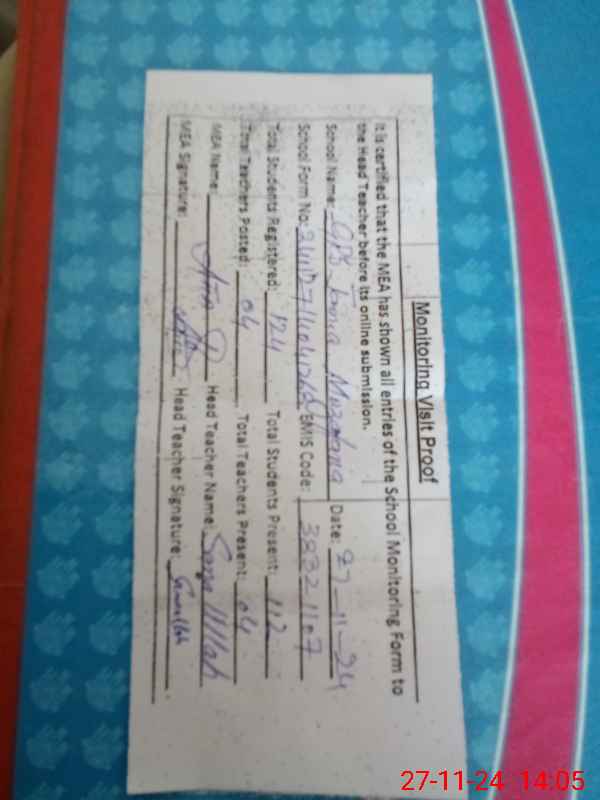 Monitoring Visit Proof
It is certified that the MEA has shown all entries of the School Monitoring Form to
the Head Teacher before its online submission.
School Name: GPS Date: 27-11-24
School Form No: EMIS Code: 38321107
Total Students Registered: 124 Total Students Present: 112
Total Teachers Posted: 04 Total Teachers Present: 04
MEA Name: Head Teacher Name:
MEA Signature: Head Teacher Signature:
27-11-24 14:05